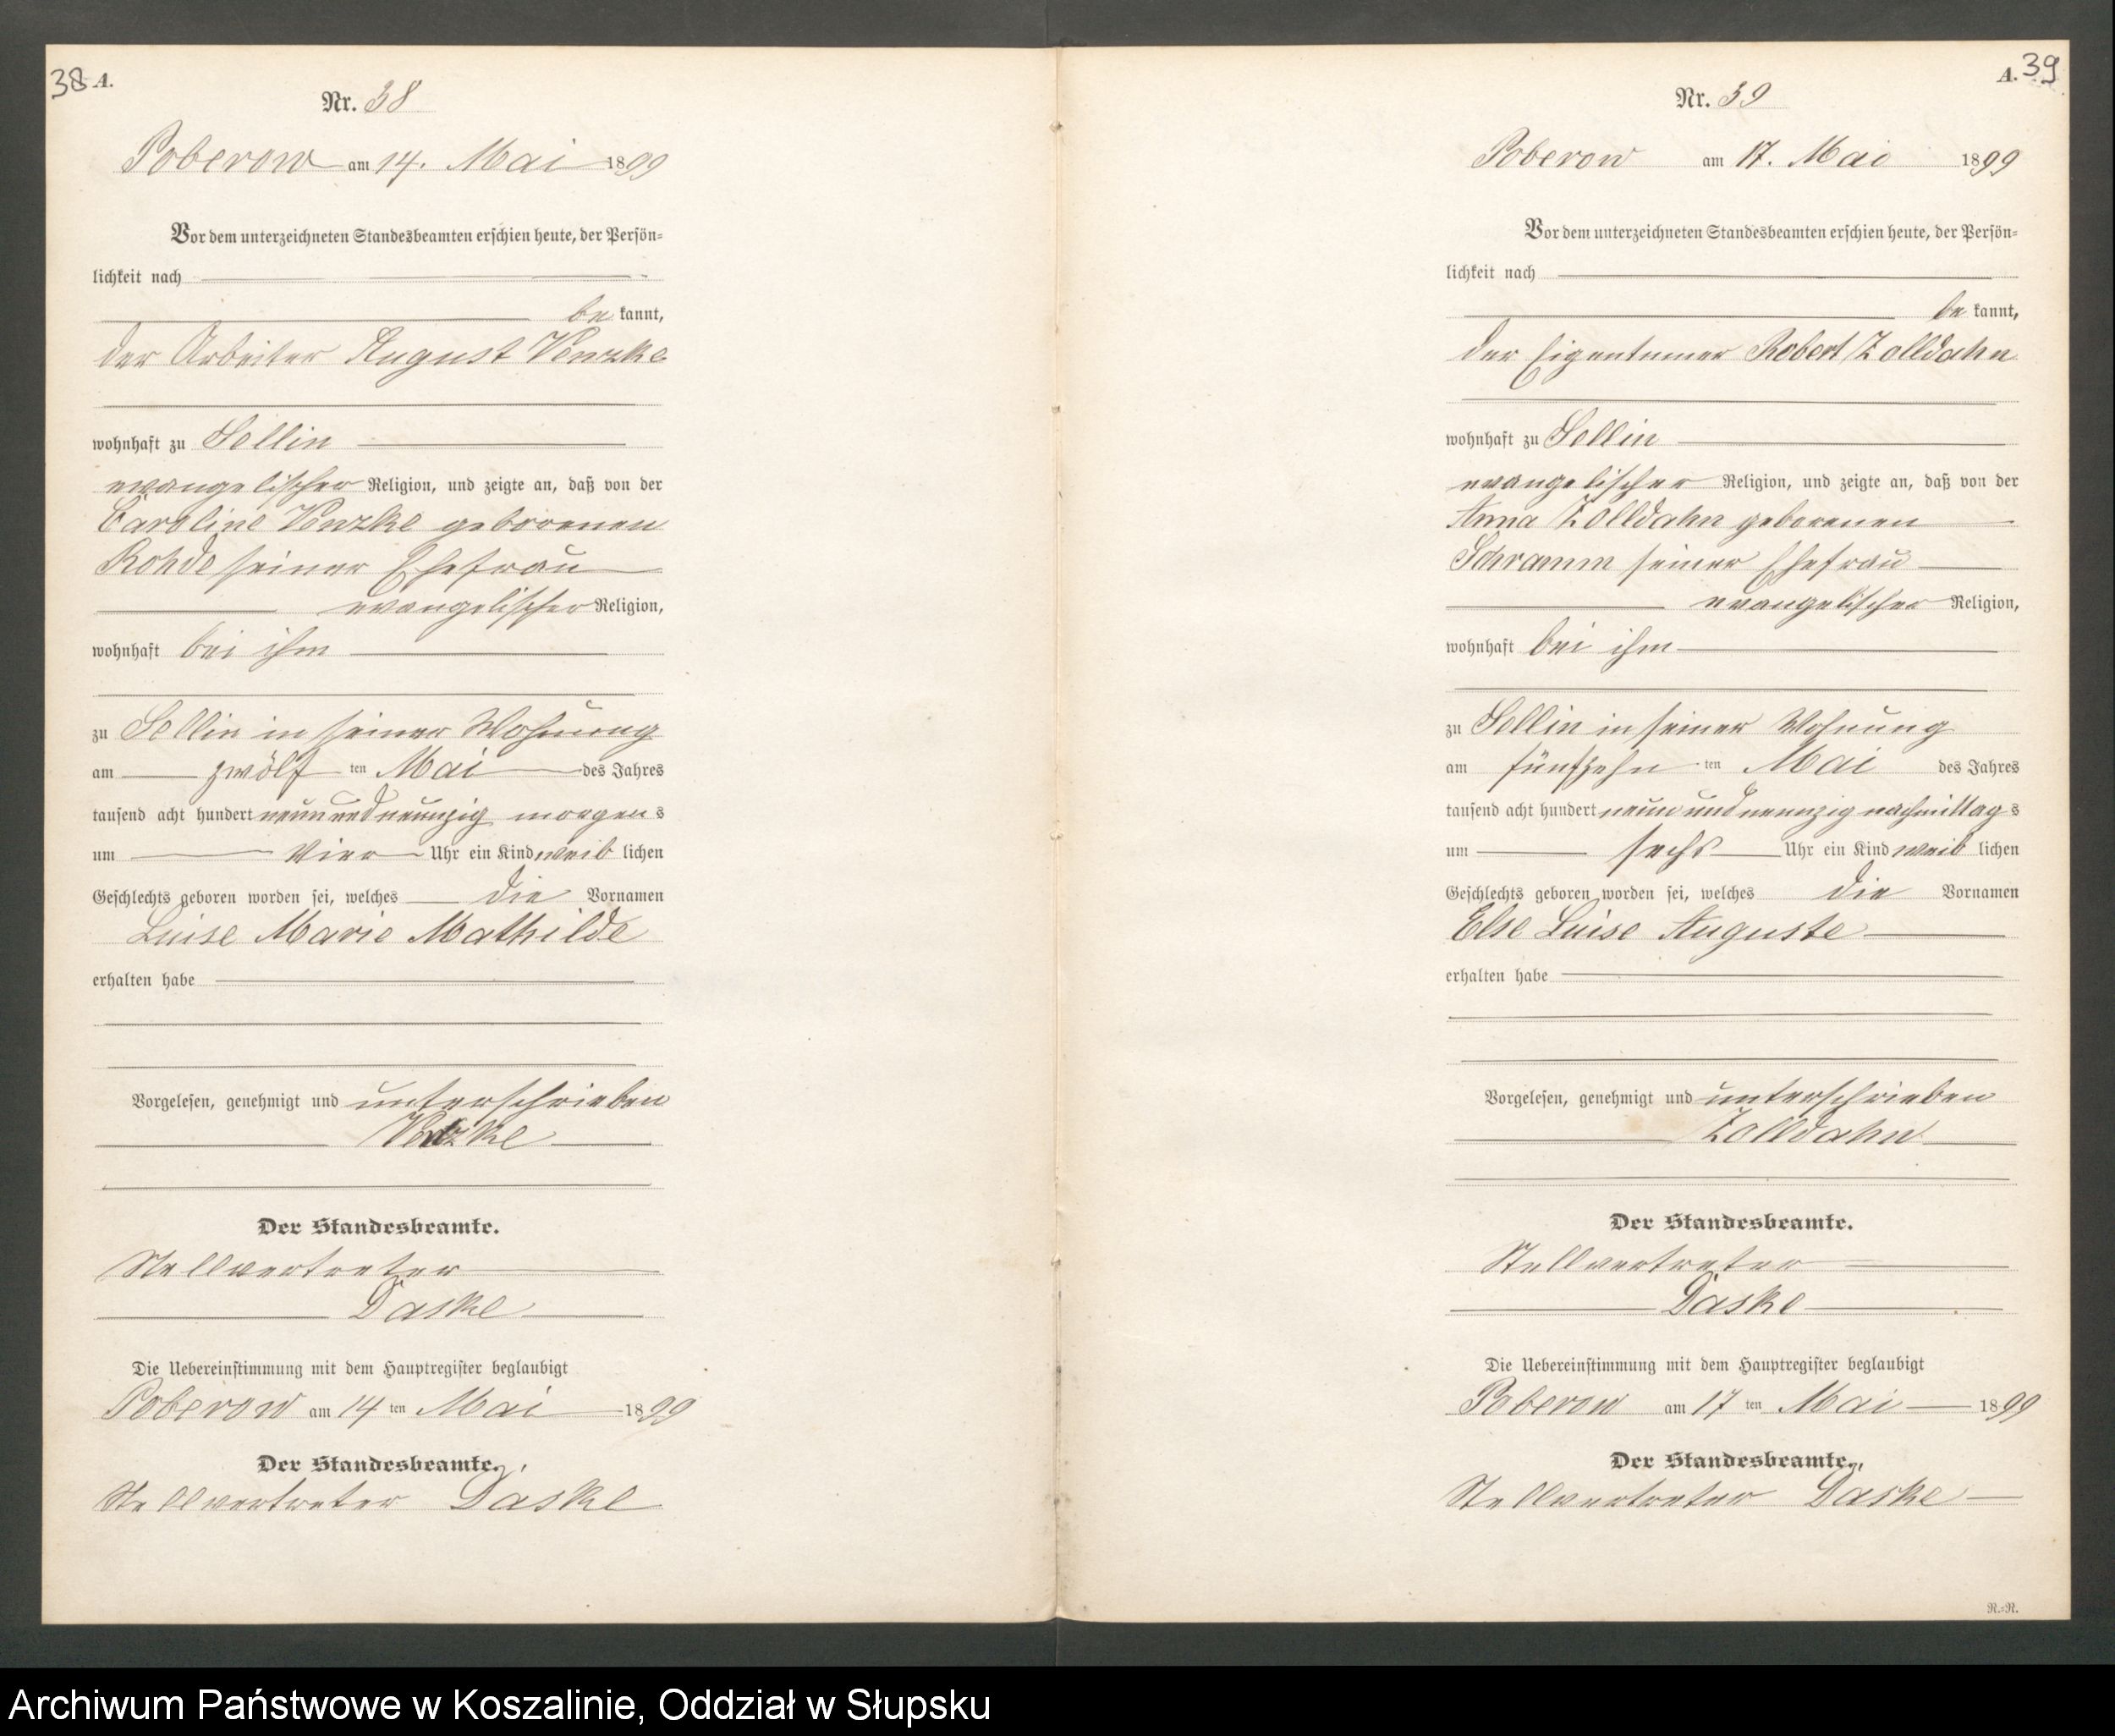 38 A.
Nr. 38
Poberow am 14. Mai 1899
Vor dem unterzeichneten Standesbeamten erschien heute, der Persön-
lichkeit nach
be kannt,
der Arbeiter August Venzke
wohnhaft zu Sellin
evangelischer Religion, und zeigte an, daß von der
Caroline Venzke geborenen
Rohde seiner Ehefrau
evangelischer Religion,
wohnhaft bei ihm
zu Sellin in seiner Wohnung
am zwölf ten Mai des Jahres
tausend acht hundert neun und neunzig morgens
um vier Uhr ein Kind weib lichen
Geschlechts geboren worden sei, welches die Vornamen
Luise Marie Mathilde
erhalten habe
Vorgelesen, genehmigt und unterschrieben
Venzke
Der Standesbeamte.
Stellvertreter
Daske
Die Uebereinstimmung mit dem Hauptregister beglaubigt
Poberow am 14 ten Mai 1899
Der Standesbeamte.
Stellvertreter Daske
A. 39
Nr. 39
Poberow am 17. Mai 1899
Vor dem unterzeichneten Standesbeamten erschien heute, der Persön-
lichkeit nach
be kannt,
der Eigentumer Robert Zolldahn
wohnhaft zu Sellin
evangelischer Religion, und zeigte an, daß von der
Anna Zolldahn geborenen
Schramm seiner Ehefrau
evangelischer Religion,
wohnhaft bei ihm
zu Sellin in seiner Wohnung
am fünfzehn ten Mai des Jahres
tausend acht hundert neun und neunzig nachmittags
um sechs Uhr ein Kind weib lichen
Geschlechts geboren worden sei, welches die Vornamen
Else Luise Auguste
erhalten habe
Vorgelesen, genehmigt und unterschrieben
Zolldahn
Der Standesbeamte.
Stellvertreter
Daske
Die Uebereinstimmung mit dem Hauptregister beglaubigt
Poberow am 17 ten Mai 1899
Der Standesbeamte.
Stellvertreter Daske
R.=R.
Archiwum Państwowe w Koszalinie, Oddział w Słupsku